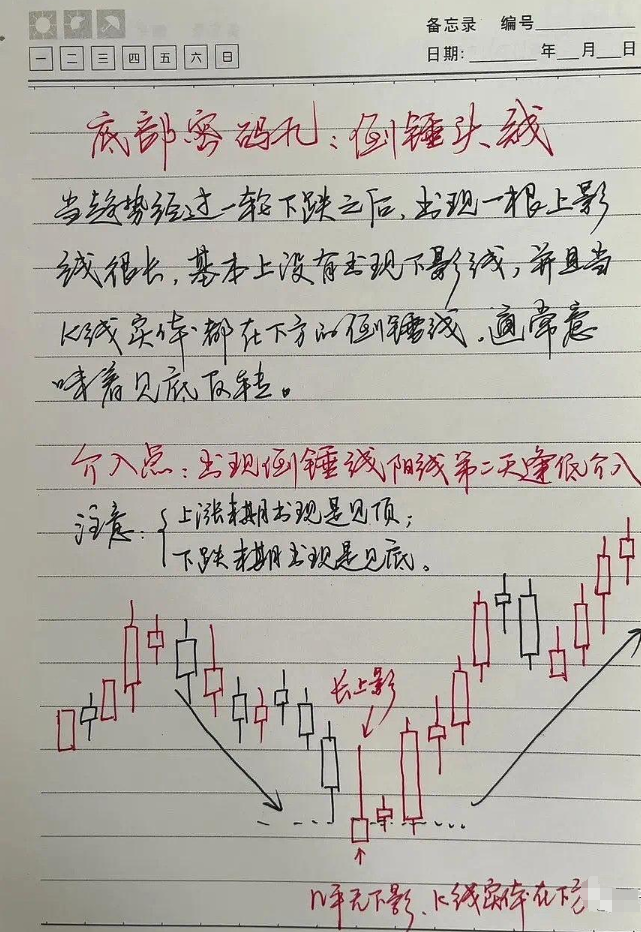 备忘录 编号
一 二 三 四 五 六 日
日期: 年 月 日
底部密码九：倒锤头线
当趋势经过一轮下跌之后，出现一根上影
线很长，基本上没有出现下影线，并且当
K线实体都在下方的倒锤线，通常意
味着见底反转。
介入点：出现倒锤线阳线第二天逢低介入
注意：{上涨末期出现是见顶；
下跌末期出现是见底。
长上影
几乎无下影、K线实体在下方